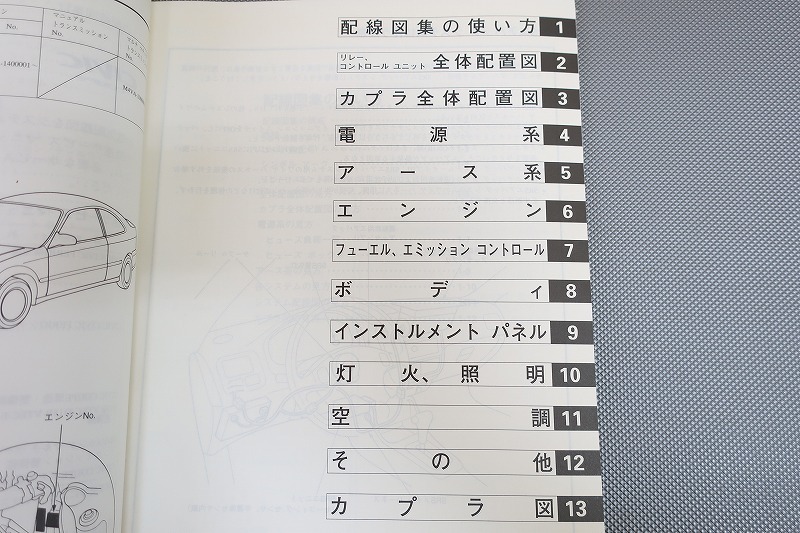 マニュアル
トランスミッション
No.
No.
-1400001~
エンジンNo.
配線図集の使い方 1
リレー、
コントロール ユニット 全体配置図 2
カプラ全体配置図 3
電源系 4
アース系 5
エンジン 6
フューエル、エミッション コントロール 7
ボディ 8
インストルメント パネル 9
灯火、照明 10
空調 11
その他 12
カプラ図 13